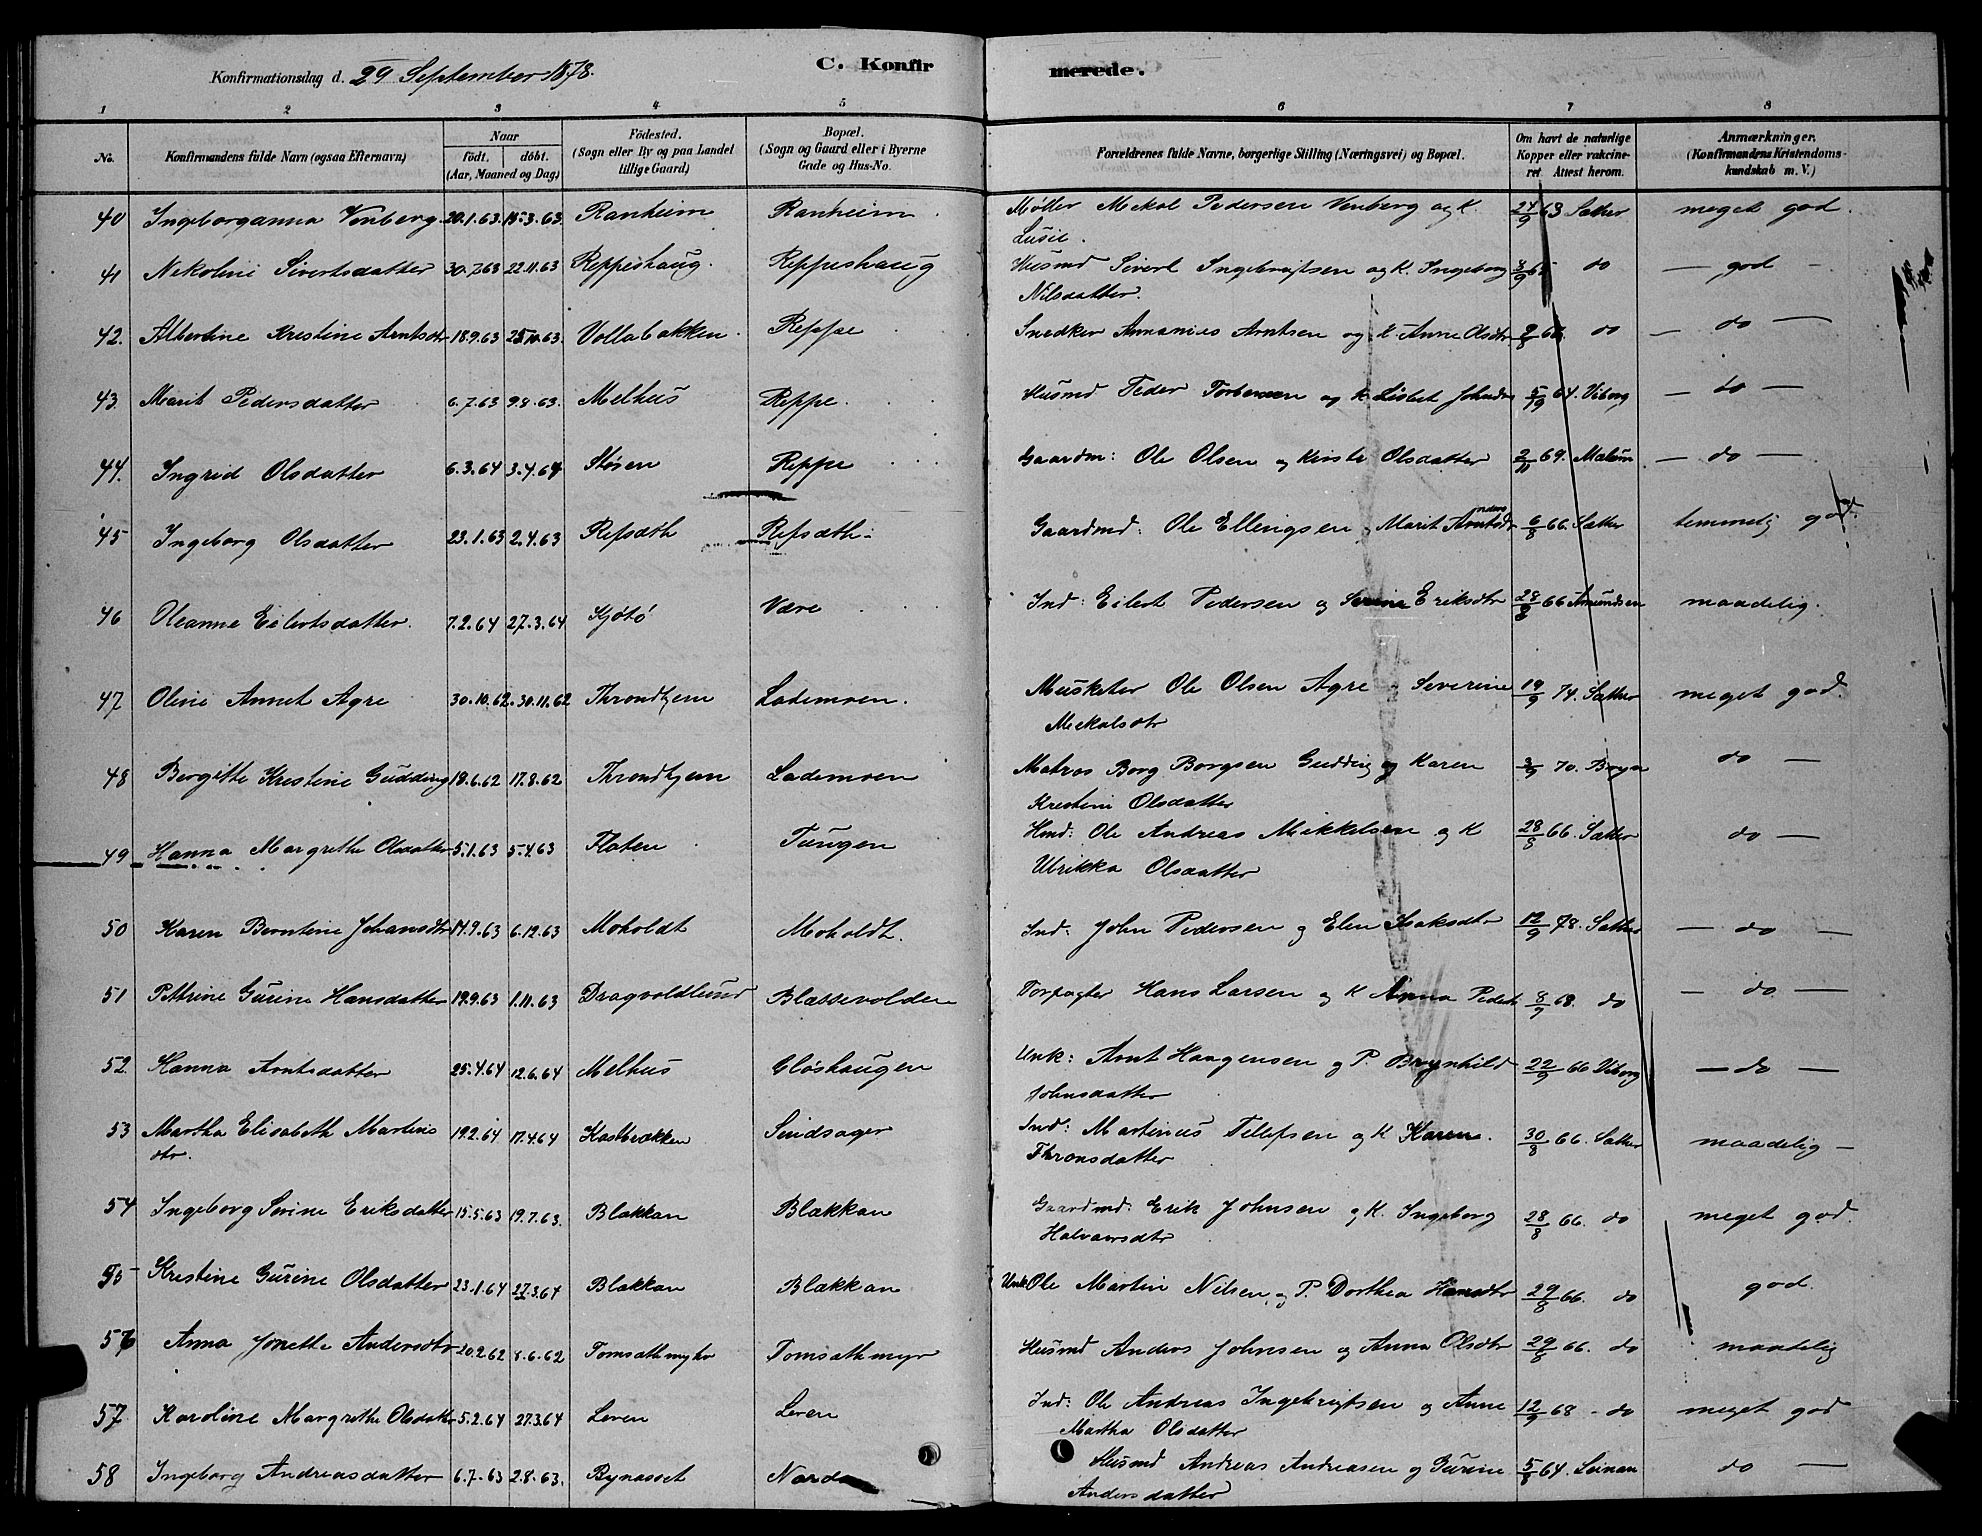 Konfirmationsdag d. 29 September 1878. C. Konfirmerede.
1 2 3 4 5 6 7 8
No. Konfirmandens fulde Navn (ogsaa Efternavn) Naar födt. döbt. (Aar, Maaned og Dag) Födested. (Sogn eller By og paa Landet tillige Gaard) Bopæl. (Sogn og Gaard eller i Byerne Gade og Hus-No. Forældrenes fulde Navne, borgerlige Stilling (Næringsvei) og Bopæl. Om havt de naturlige Kopper eller vakcineret. Attest herom. Anmærkninger. (Konfirmandens Kristendomskundskab m. V.)
40 Ingeborganna Venberg 20.1.63 15.3.63 Ranheim Ranheim Møller Mekal Pedersen Venberg og K. 24/9 63 Sæther meget god.
Lusie.
41 Nikoline Sivertsdatter 30.7.63 22.11.63 Reppeshaug. Reppeshaug Husmd Sivert Ingebrigtsen og K. Ingeborg do — god —
Nilsdatter.
42. Albertine Kristine Arntsdtr 18.9.63 25.10.63. Vollabakken. Reppe Snedker Annanias Arntsen og K. Anne Olsdtr do — do —
43. Marit Pedersdatter 6.7.63 9.8.63. Melhus Reppe. Husmd Peder Torbersen og K. Lisbet Johnsdtr 64. Viborg — do —
44. Ingrid Olsdatter 6.3.64 3.4.64 Støren Reppe Gaardm: Ole Olsen og Kirsti Olsdatter 2/11 69. — do —
45 Ingeborg Olsdatter 23.1.63 2.4.63 Refsæth Refsæth Gaardmd: Ole Ellingsen, Marit 6/8 66. Sæther temmelig god.
46 Oleanna Eilertsdatter. 7.2.64 27.3.64 Kjøtø Være Ind: Eilert Pedersen og Serina Eriksdtr 28/8 66 Amundsen maadelig.
47 Oline Annet Agre 30.10.62. 30.11.62 Throndhjem Lademoen. Musketer Ole Olsen Agre & Severine 19/9 74. Sæther meget god.
Mekalsdtr
48 Bergitte Kristine Gudding 18.6.62 17.8.62 Throndhjem Lademoen Matros Borg Borgsen Gudding og Karen 3/9 70. do —
Kristine Olsdatter
49 Hanna Margrethe Olsdatter 5.1.63 5.4.63 Flaten Tungen Hmd: Ole Andreas Mikkelsen og K 28/8 66. Sæther do —
Ulrikka Olsdatter
50 Karen Berntine Johansdtr 14.9.63 6.12.63 Moholdt Moholdt. Ind: John Pedersen og Elen Isaksdtr 12/9 78. Sæther — do —
51 Petrine Gurine Hansdatter 19.9.63 1.11.63 Dragvoldlund Blæssevolden Forpagter Hans Larsen og K Anna Pedersdtr 8/9 68. do — do —
52. Hanna Arntsdatter 25.4.64 12.6.64 Melhus Gløshaugen Unk: Arnt Haagensen og P. Brynhild 22/9 66 Viborg — do —
Johnsdatter
53 Martha Elisabeth Martinus 19.2.64 17.4.64 Kastbrækken Sindsager Ind: Martinus Tellefsen og K Karen. 30/8 66. Sæther maadelig —
dtr. Thronsdatter
54 Ingeborg Serine Eriksdatter 15.5.63 19.7.63. Blakkan Blækkan Gaardmd: Erik Johnsen og K. Ingeborg 28/8 66. do meget god.
Halvaorsdtr
55 Kristine Gurine Olsdatter 23.1.64 27.3.64 Blakkan Blækkan Unk: Ole Martin Nilsen og P. Dorthea Hansdtr 29/8 66. do god.
56 Anna Jonette Andersdtr 20.2.62 8.6.62 Tomsathmyhr Tomsathmyr Husmd Anders Johnsen og Anna Olsdtr 29/8 66. do maadelig
57 Karoline Margrethe Olsdatter 5.2.64 27.3.64 Leren Leren Ind: Ole Andreas Ingebrigtsen og Anne 12/9 68 - do meget god
Martha Olsdatter
58 Ingeborg Andreasdatter 6.7.63 2.8.63. Bynæsset Husmd Andreas Andreasen og Gurine 5/8 64. Leinan do —
Andersdatter